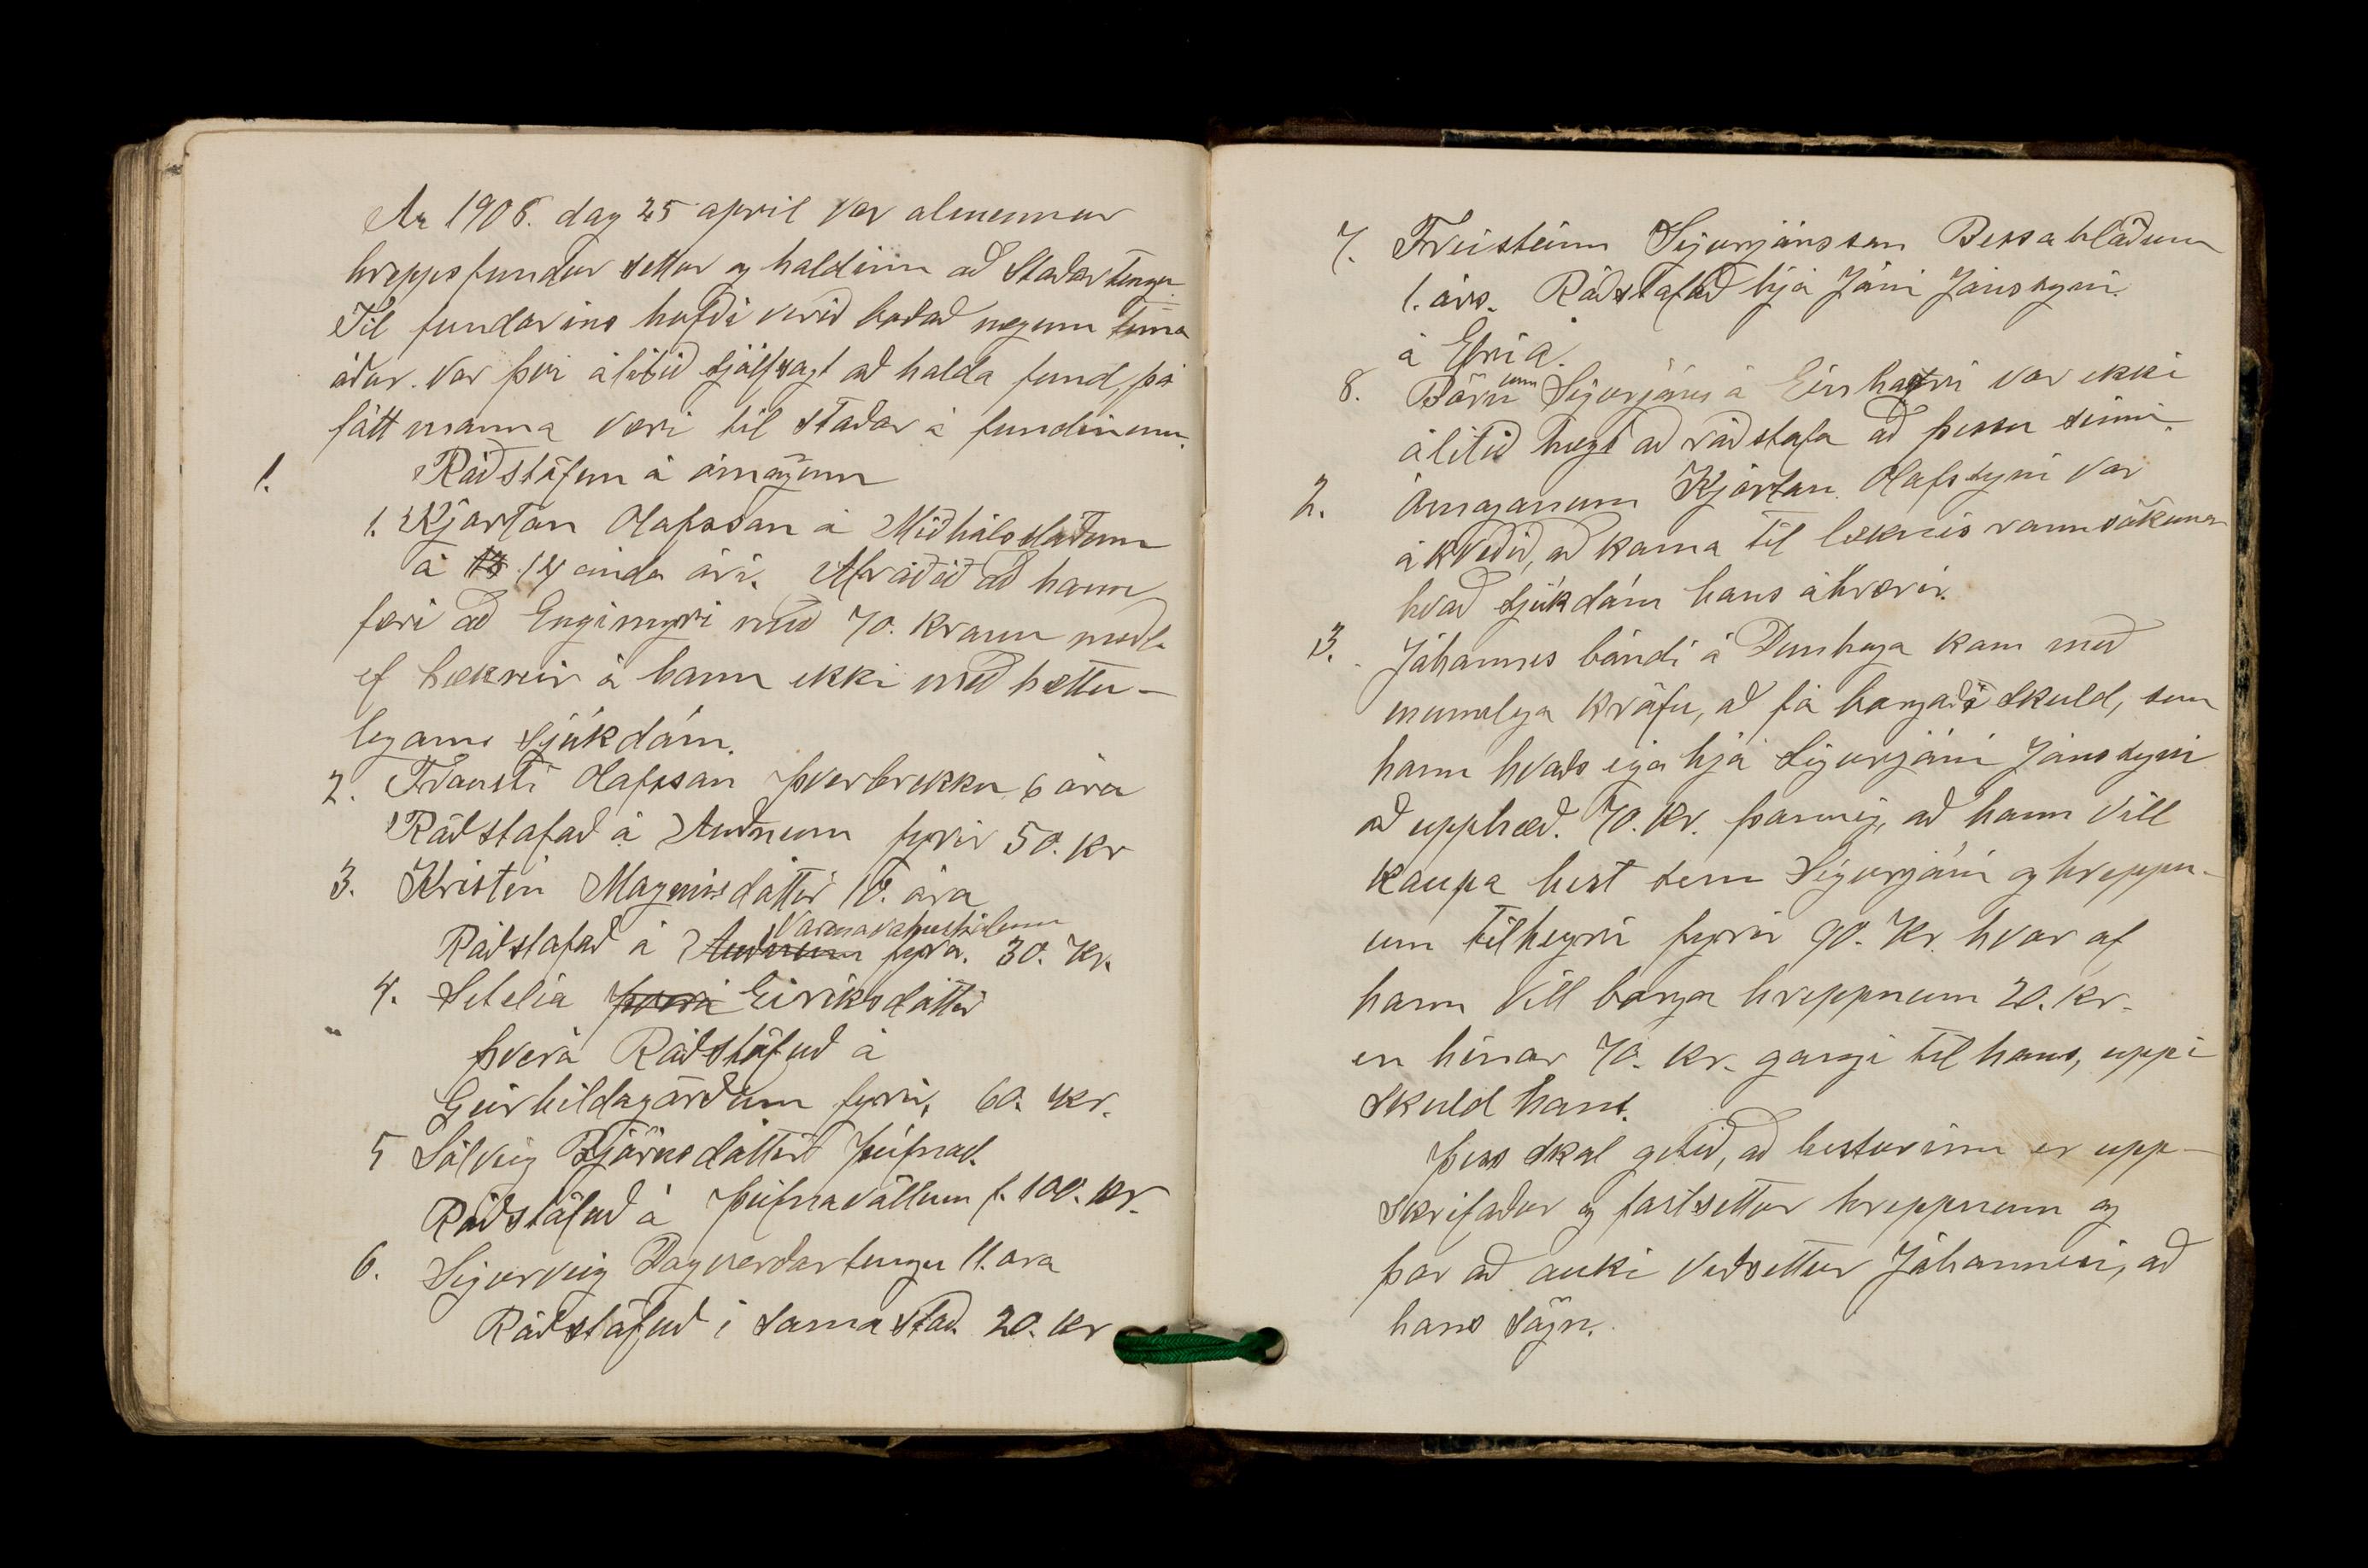 Ár 1908. dag 25 apríl var almennur
hreppsfundur settur og haldinn að Staðartungu
Til fundarins hafði verið boðað nægum tíma
áður. Var því álitið sjálfsagt að halda fund, þó
fátt manna væri til staðar á fundinum.
1. Ráðstöfun á ómögum
1. Kjartan Olafsson á Miðhálsstöðum
á 14 anda ári. Afráðið að hann
færi að Engimýri með 70. krónu meðl.
ef læknir á hann ekki með hættu-
legann sjúkdóm.
2. Trausti Olafsson Þverbrekku 6 ára
Ráðstafað á Auðnum fyrir 50. kr
3. Kristín Magnúsdóttir 10. ára
Varmavatnshólum
Ráðstafað á Auðnum fyrir. 30. Kr.
4. Setelía Þverá Eiríksdóttir
Þverá Ráðstöfuð á
Geirhildagörðum fyrir. 60. kr.
5 Sólveig Björnsdóttir Þúfnav.
Ráðstöfuð á Þúfnavöllum f. 100. kr.
6. Sigurveig Dagverðartungu 11. ára
Ráðstöfuð í sama stað 20. kr
7. Freisteinn Sigurjónsson Bessahlöðum
1. árs. Ráðstafað hjá Jóni Jónssyni
á Efri á.
8. Börnunum Sigurjóns á Einhamri var ekki
álitið hægt að ráðstafa að þessu sinni.
2. Ómaganum Kjartan Olafssyni var
ákveðið, að koma til læknis rannsóknar
hvað sjúkdóm hans áhrærir.
3. Jóhannes bóndi á Dunhaga kom með
munnlega kröfu, að fá borgaða skuld, sem
hann kvaðs eiga hjá Sigurjóni Jónssyni
að upphæð. 70. kr. þannig, að hann vill
kaupa hest sem Sigurjóni og hreppn-
um tilheyri fyrir 90. Kr. hvar af
hann vill borga hreppnum 20. kr.
en hinar 70. kr. gangi til hans, uppi
skuld hans.
Þess skal getið, að hesturinn er upp-
skrifaður og fastsettur hreppnum og
þar að auki veðsettur Jóhannesi, að
hans sögn.